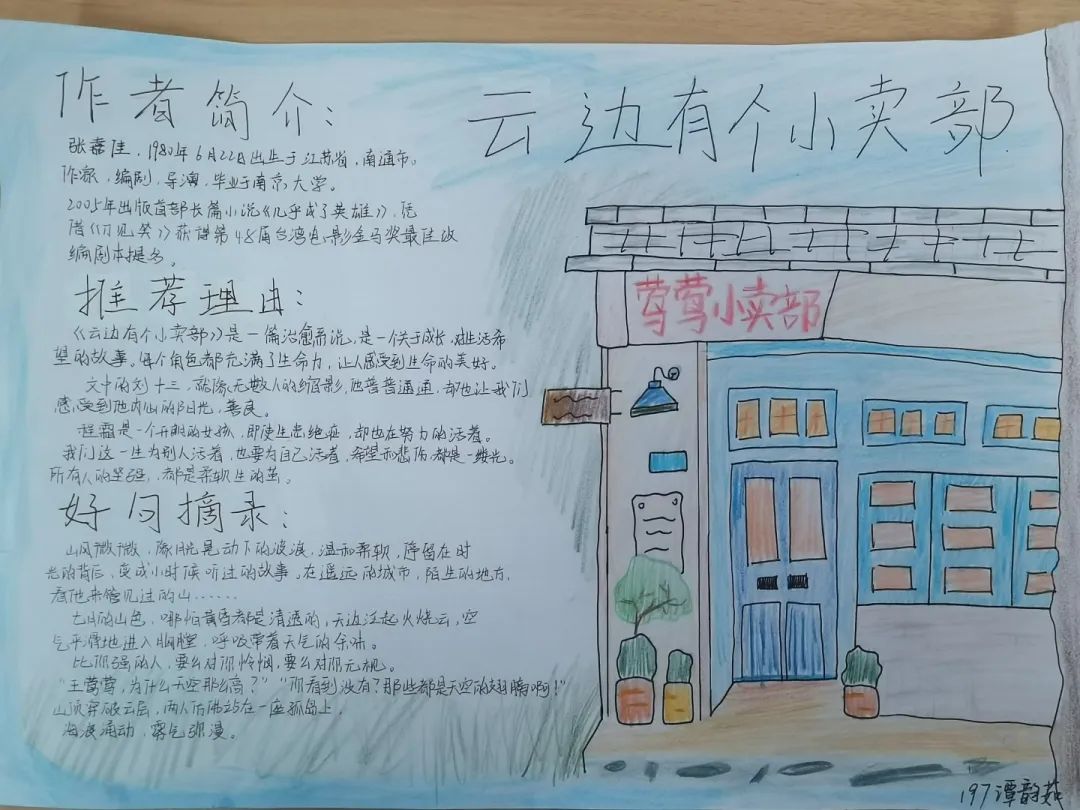 云边有个小卖部
作者简介：
张嘉佳，1980年6月22日出生于江苏省，南通市。
作家，编剧，导演，毕业于南京大学。
2005年出版首部长篇小说《几乎成了英雄》，凭
借《刀见笑》获得第48届台湾电影金马奖最佳改
编剧本提名。
推荐理由：
《云边有个小卖部》是一篇治愈系小说，是一个关于成长，对生活希
望的故事。每个角色都充满了生命力，让人感受到生命的美好。
文中的刘十三，就像无数人的缩影，他普普通通，却也让我们
感受到他内心的阳光，善良。
程霜是一个开朗的女孩，即使生患绝症，却也在努力的活着。
我们这一生为别人活着，也要为自己活着，希望和悲伤，都是一缕光。
所有人的坚强，都是柔软生的茧。
好句摘录：
山风微微，像月光晃动下的波浪，温和柔软，停留在时
光的背后，变成小时候听过的故事。在遥远的城市，陌生的地方，
有他未曾见过的山……
七月的山色，哪怕黄昏都是清透的，天边泛起火烧云，空
气平滑地进入胸膛，呼吸带着天气的余味。
比你强的人，要么对你怜悯，要么对你无视。
“王莺莺，为什么天空那么高？”“你看到没有？那些都是天空的翅膀啊！”
山顶穿破云层，两人仿佛站在一座孤岛上，
海浪涌动，雾气弥漫。
莺莺小卖部
197谭韵茹